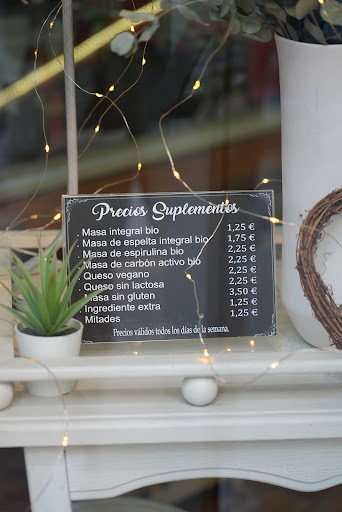 Precios Suplementos
. Masa integral bio 1,25 €
. Masa de espelta integral bio 1,75 €
. Masa de espirulina bio 2,25 €
. Masa de carbón activo bio 2,25 €
. Queso vegano 2,25 €
. Queso sin lactosa 2,25 €
. Masa sin gluten 3,50 €
. Ingrediente extra 1,25 €
. Mitades 1,25 €
Precios válidos todos los días de la semana.